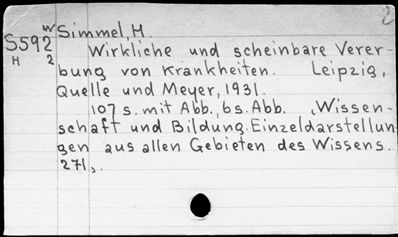 2
W Simmel, H.
S592 Wirkliche und scheinbare Verer-
H 2 bung von Krankheiten. Leipzig,
Quelle und Meyer, 1931.
107 s. mit Abb., 6 s. Abb. „Wissen-
schaft und Bildung. Einzeldarstellun
gen aus allen Gebieten des Wissens.
271„.